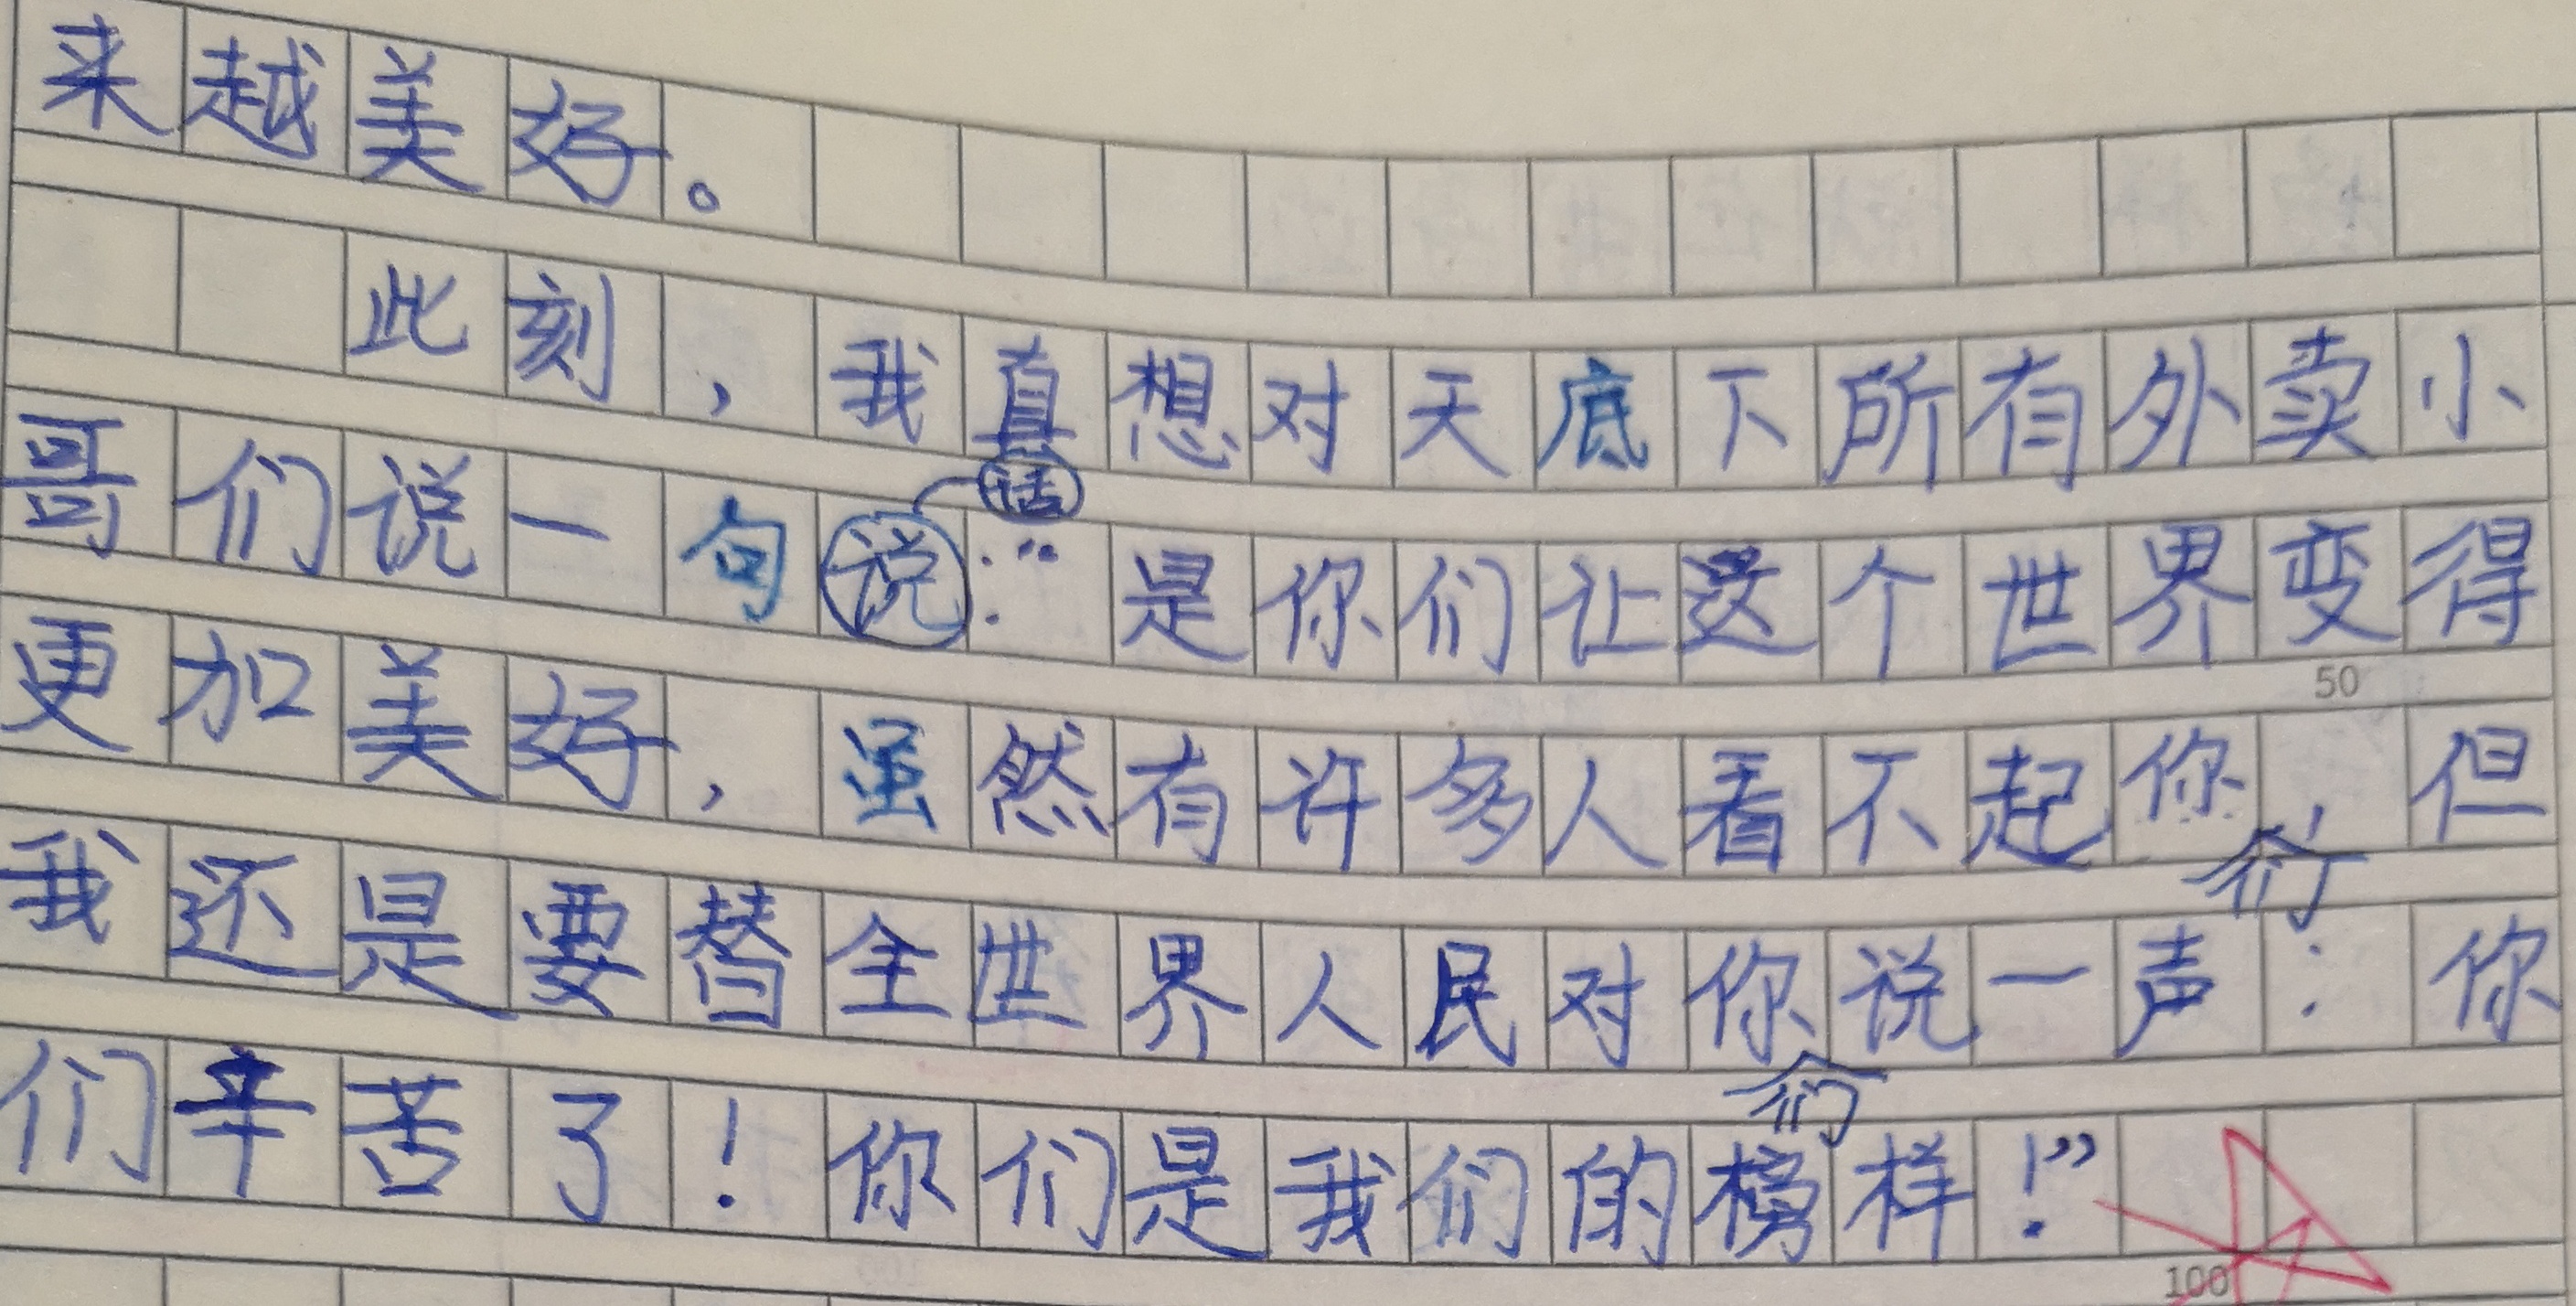 来越美好。
此刻，我真想对天底下所有外卖小
哥们说一句话：“是你们让这个世界变得
50
更加美好，虽然有许多人看不起你们，但
我还是要替全世界人民对你们说一声：你
们辛苦了！你们是我们的榜样！”
100